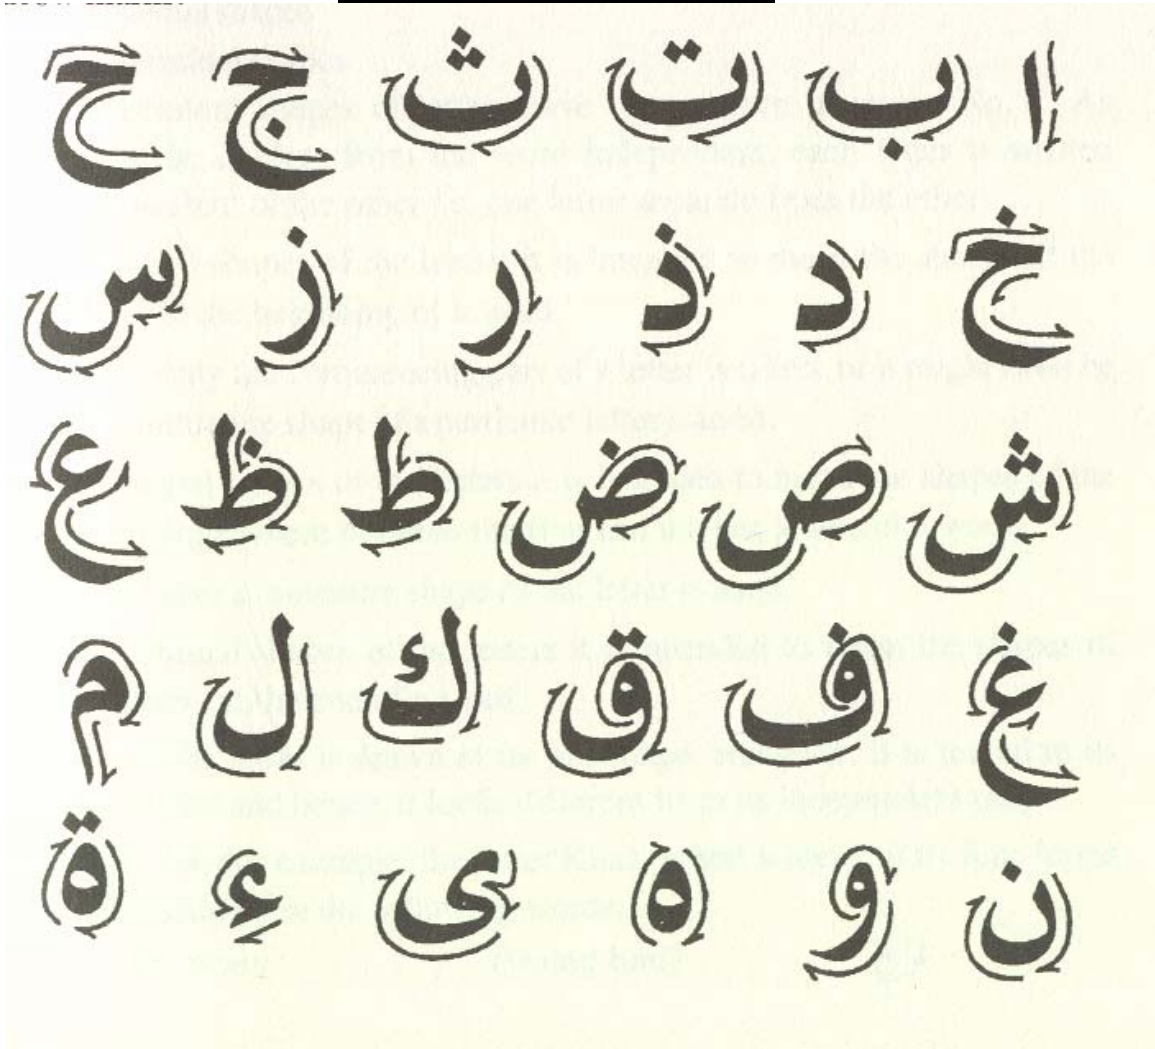 ا ب ت ث ج ح
خ د ذ ر ز س
ش ص ض ط ظ ع
غ ف ق ك ل م
ن و ه ى ء ة